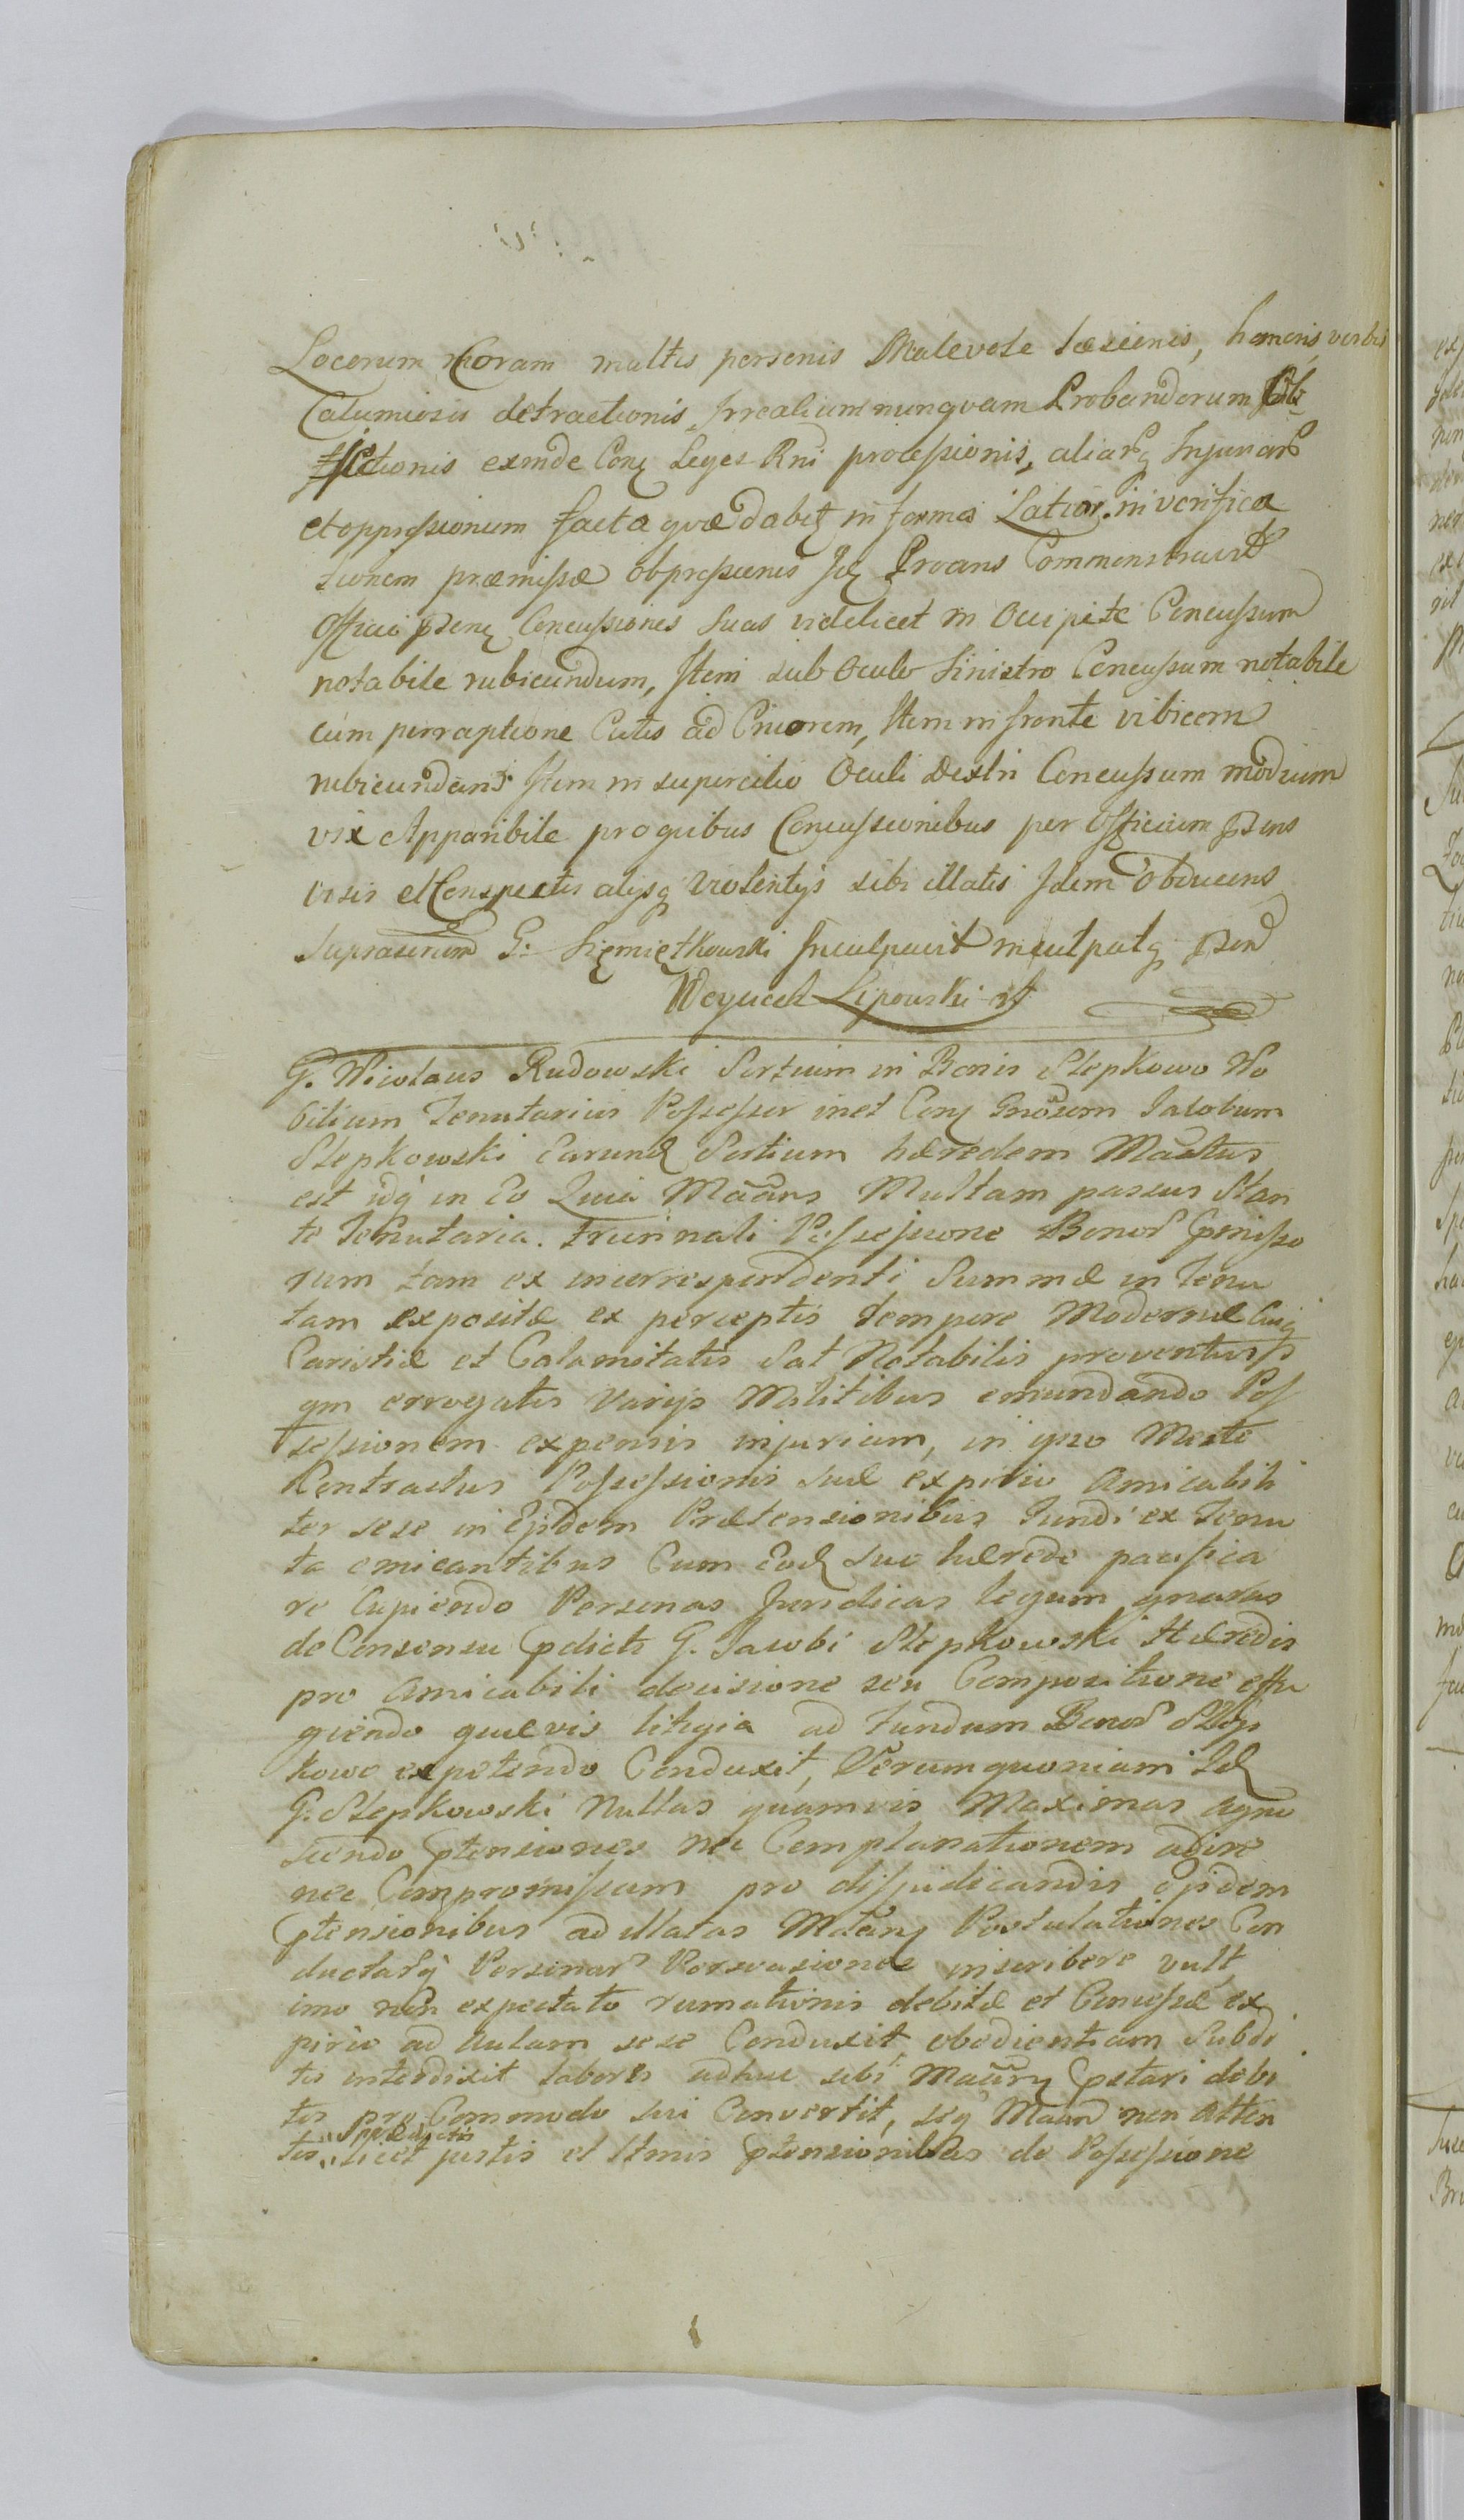 Locorum Coram multis personis Malevole Læsionis, honoris verbis
Calumiosis detractionis, Irrealium nunquam Probandorum Ob
jectionis exinde Conq Leges Rni processionis, aliarq Injuriar
et oppressionum facta quæ dabitq in forma Latior. in verifica
tionem præmissæ obpressionis Idq Proans Commonstravit
Officio pstnq Concussiones suas videlicet in Occipite Concussum
notabile rubicundum, Item sub Oculo Sinistro Concussum notabile
cum perraptione Cutis ad Cruorem, Item in fronte vibicem
rubicundam Item in supercilio Oculi dextri Concussum modicum
vix Apparibile pro quibus Concussionibus per Officium pstns
visis et Conspectis alijsq Violentijs sibi illatis Idem Obducens
suprascriem G. Siemiętkowski Inculpavit inculpatq pstn
Woyciech Lipowski
G. Nicolaus Rudowski Sortium in Bonis Slepkowo No
bilium Tenutarius Possessor inet Conq Gnosum Jacobum
Slepkowski Earundq Sortium hæredem Mastus
est idq in Eo Quia Maans Multam passus Stan
te Tenutaria. triennali Possessione Bonor pmisso
rum tam ex incorrespondenti Summæ in Tenu
tam expositæ ex perceptis tempore Modernæ Cuiq
Caristiæ et Calamitatis Sat Notabilis proventus
qm errogatis Varijs Militibus emundando Pos
sessionem expensis injuriam, in ipso Meste
Contractus Possessionis suæ expirio Amicabili
ter sese in Ejsdem Prætensionibus fundi ex Tenu
ta emicantibus Cum Eodq suo hærede pacifica
re Cupiendo Personas Juridicas legum gnaras
de Consensu pdicti G. Jacobi Slepkowski Hæredis
pro Amicabili decisione seu Compositione effu
giendo quævis litigia ad fundum Bonor Slep
kowo expetendo Conduxit, Verum quoniam Idq
G. Slepkowski Nullas quamvis Maximas agno
scendo ptensiones nec Complanationem adire
nec Compromissum pro disjudicandis ejsdem
ptensionibus ad illatas Maanq Postulationes Con
ductarq Personar Persvasiones inscribere vult
imo non expectato rumationis debitæ et Concessæ ex
pirio ad Aulam sese Conduxit, obedientiam Subdi
tis interdixit labores adhuc sibi Maanq pstari debi
tos pro Commodo sui Convertit, seq Maan non Atten
tis licet justis et Itmis ptensionibus de Possessione